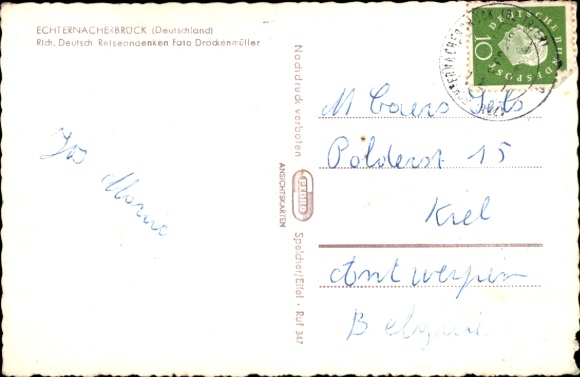 ECHTERNACHERBRÜCK (Deutschland)
Rich. Deutsch Reiseandenken Foto Drockenmüller
Jos Maria
Nachdruck verboten
ANSICHTSKARTEN
Speicher/Eifel • Ruf 347
DEUTSCHE BUNDESPOST
10
M Caers Sets
Polderst 15
Kiel
Antwerpen
Belgie